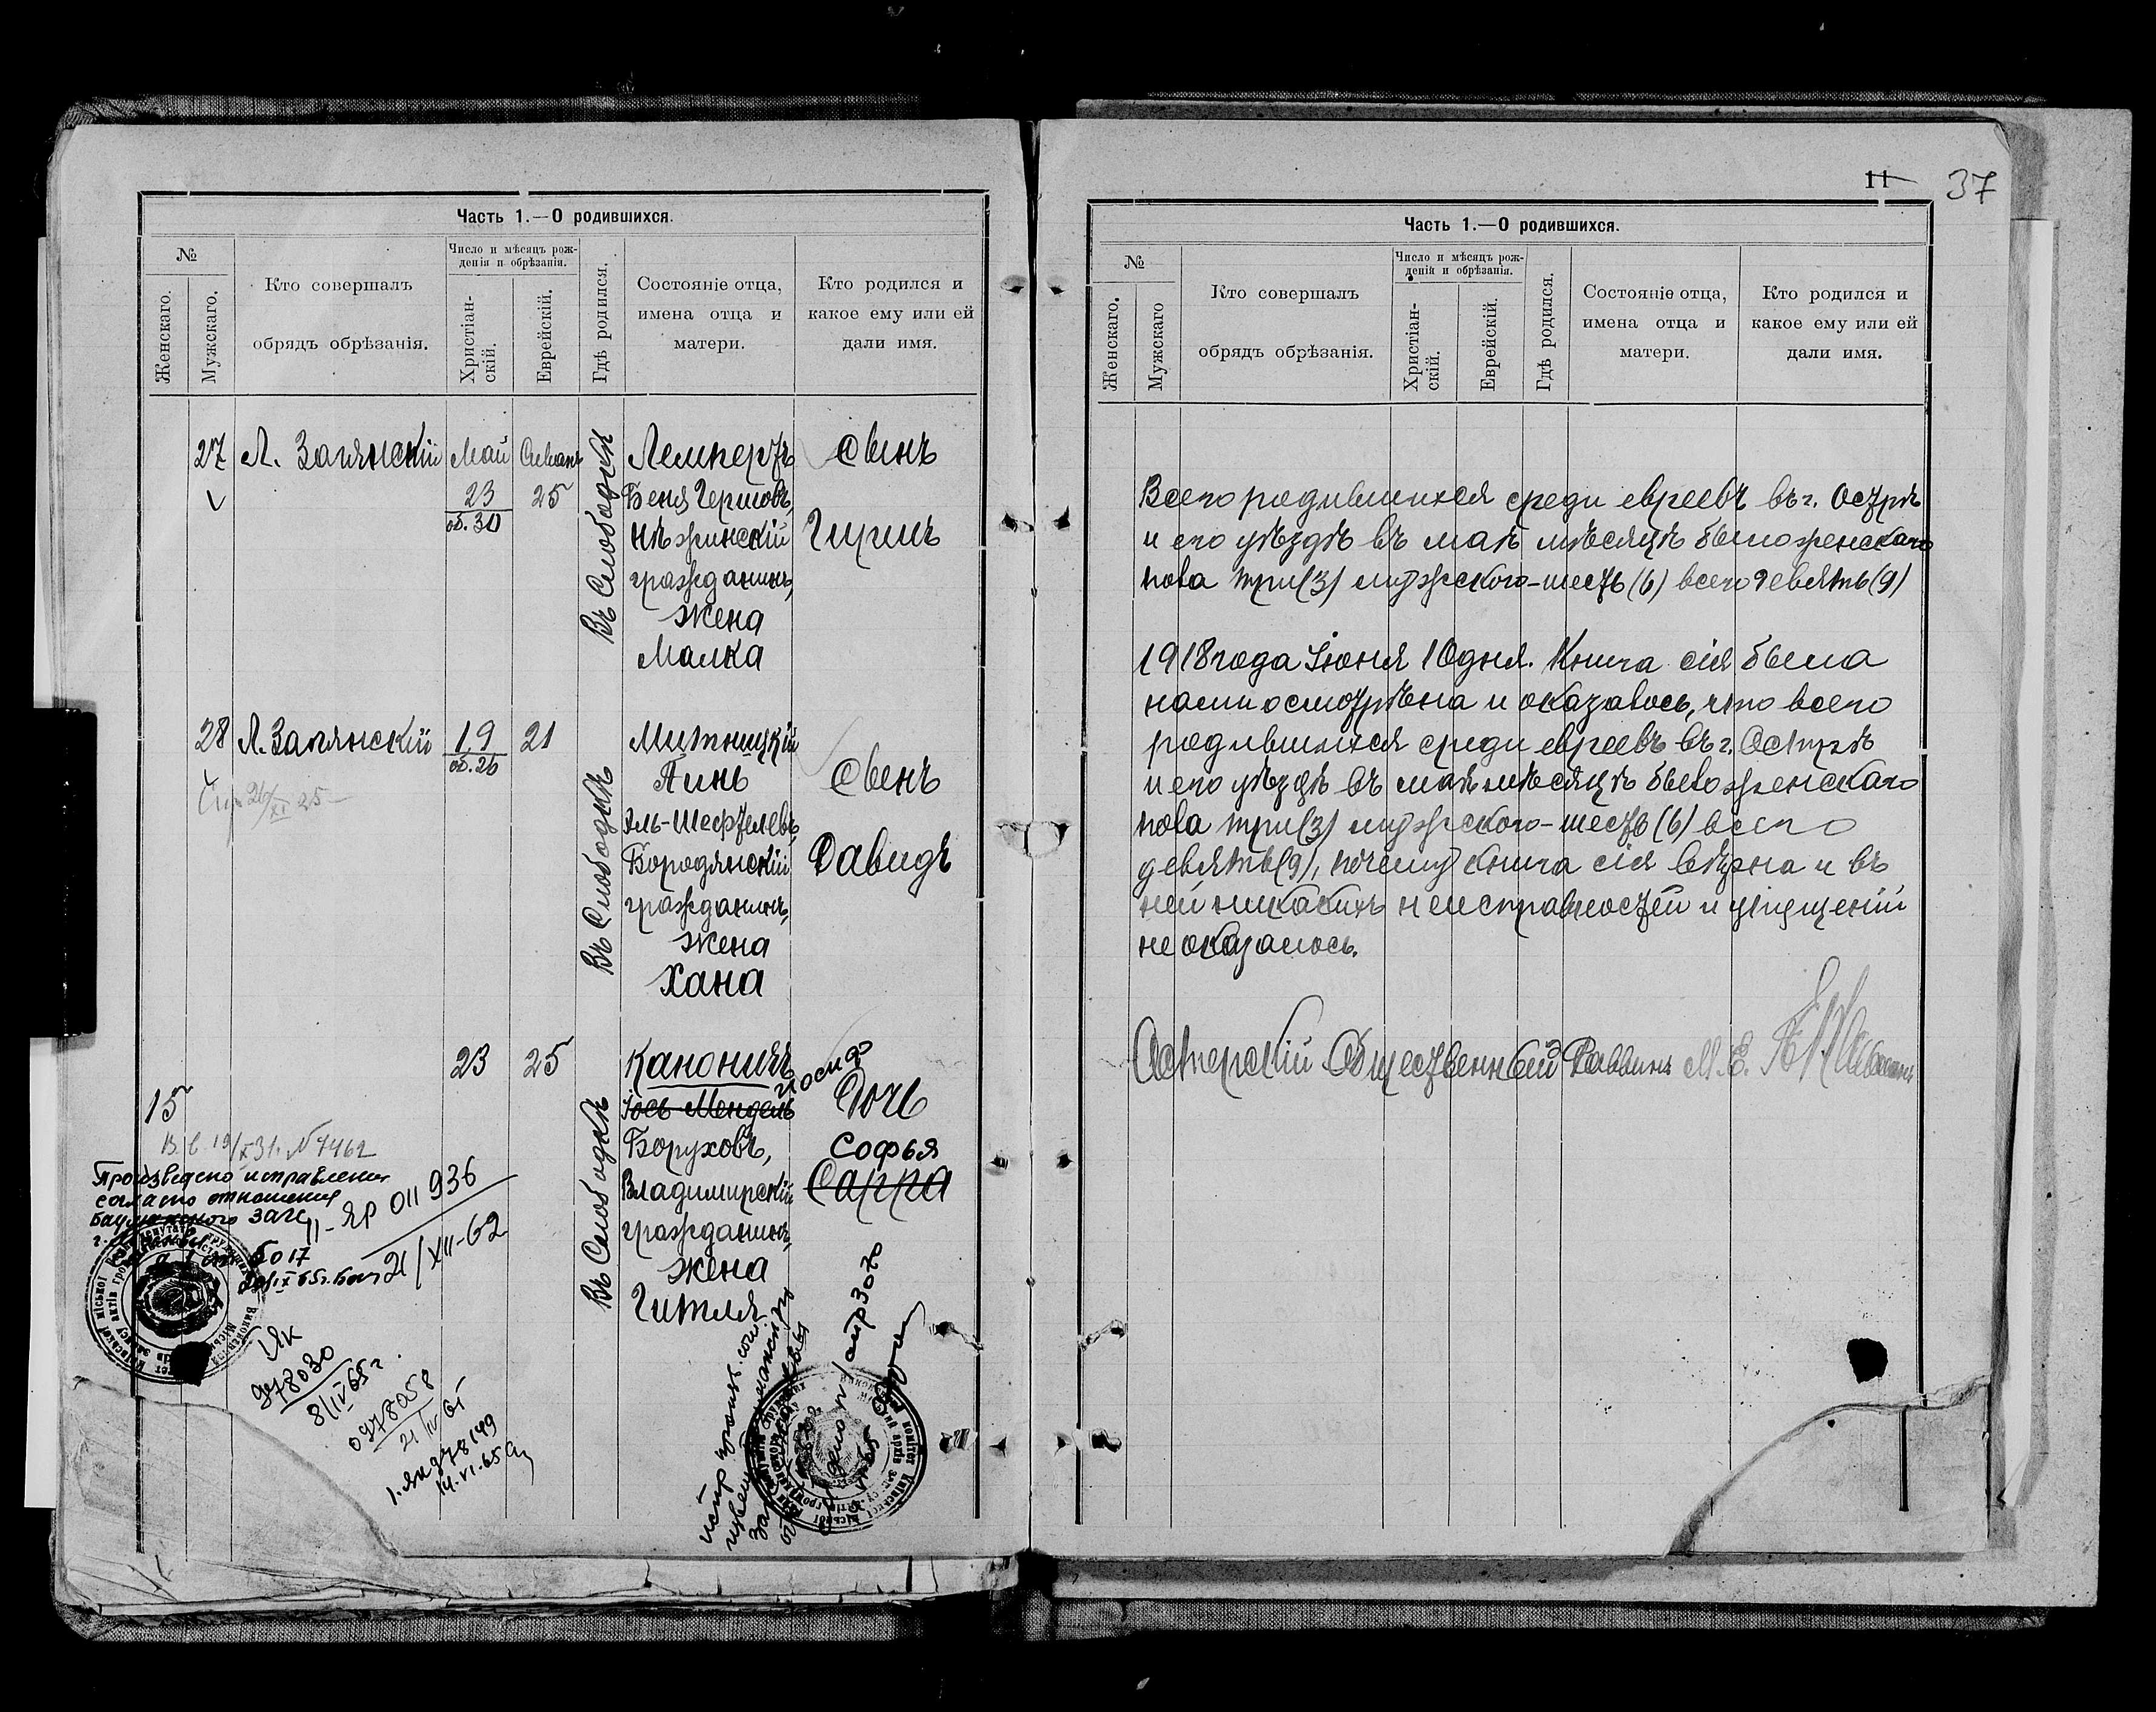 Часть 1.—О родившихся.
№
Женскаго.
Мужскаго.
Кто совершалъ
обрядъ обрѣзанія.
Число и мѣсяцъ рож-
денія и обрѣзанія.
Христіан-
скій.
Еврейскій.
Гдѣ родился.
Состояніе отца,
имена отца и
матери.
Кто родился и
какое ему или ей
дали имя.
27 Л. Заглянскій Май Сиванъ
23 25
об. 30
Въ Слободкѣ
Лемпертъ
Беня Гершовъ,
Нѣжинскій
гражданинъ,
жена
Малка
Сынъ
Гиршъ
28 Л. Заглянскій 19 21
об. 26
Въ Слободкѣ
Митницкій
Эль-Шефтелевъ,
Бородянскій
гражданинъ,
жена
Хана
Сынъ
Давидъ
15
23 25
Въ Слободкѣ
Каноничъ
Іосифъ
Іось-Мендель
Боруховъ,
Владимирскій
гражданинъ,
жена
Гитля
Дочь
Софья
Сарра
Произведено исправление
согласно отношения
Бауманского ЗАГС
II-ЯР 011936
21/XII-62
ІЯк
978030
8/IV 65 г.
0978058
21/IV 65
I. ЯК 978199
14.VI.65
11 37
Часть 1.—О родившихся.
№
Женскаго.
Мужскаго
Кто совершалъ
обрядъ обрѣзанія.
Число и мѣсяцъ рож-
деній и обрѣзанія.
Христіан-
скій.
Еврейскій.
Гдѣ родился.
Состояніе отца,
имена отца и
матери.
Кто родился и
какое ему или ей
дали имя.
Всего родившихся среди евреевъ въ г. Острѣ
и его уѣздѣ въ маѣ мѣсяцѣ было женскаго
пола три (3) мужского-шесть (6) всего девять (9)
1918 года Іюня 10 дня. Книга сія была
нами осмотрѣна и оказалось, что всего
родившихся среди евреевъ въ г. Острѣ
и его уѣздѣ въ маѣ мѣсяцѣ было женскаго
пола три (3) мужского-шесть (6) всего
девять (9), почему книга сія вѣрна и въ
ней никакихъ неисправностей и упущеній
не оказалось.
Остерскій Общественный Раввинъ М. Е.